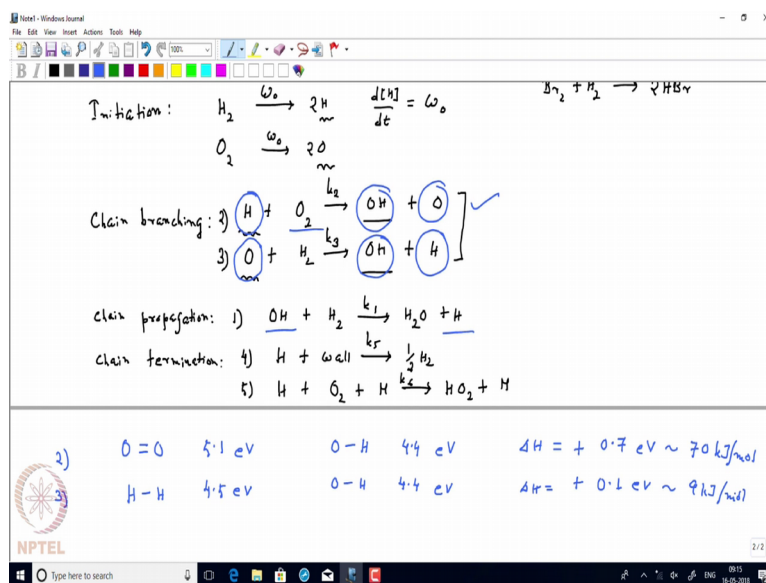 Note1 - Windows Journal
File Edit View Insert Actions Tools Help
100%
B I
Initiation : H₂ —ω₀→ 2H d[H]/dt = ω₀ Br₂ + H₂ → 2HBr
O₂ —ω₀→ 2O
Chain branching : 2) H + O₂ —k₂→ OH + O
3) O + H₂ —k₃→ OH + H
Chain propagation: 1) OH + H₂ —k₁→ H₂O + H
Chain termination: 4) H + wall —k₅→ ½ H₂
5) H + O₂ + M —k₆→ HO₂ + M
2) O=O 5.1 eV O-H 4.4 eV ΔH = + 0.7 eV ~ 70 kJ/mol
3) H-H 4.5 eV O-H 4.4 eV ΔH = + 0.1 eV ~ 9 kJ/mol
NPTEL
2/2
Type here to search
ENG
09:15
16-05-2018